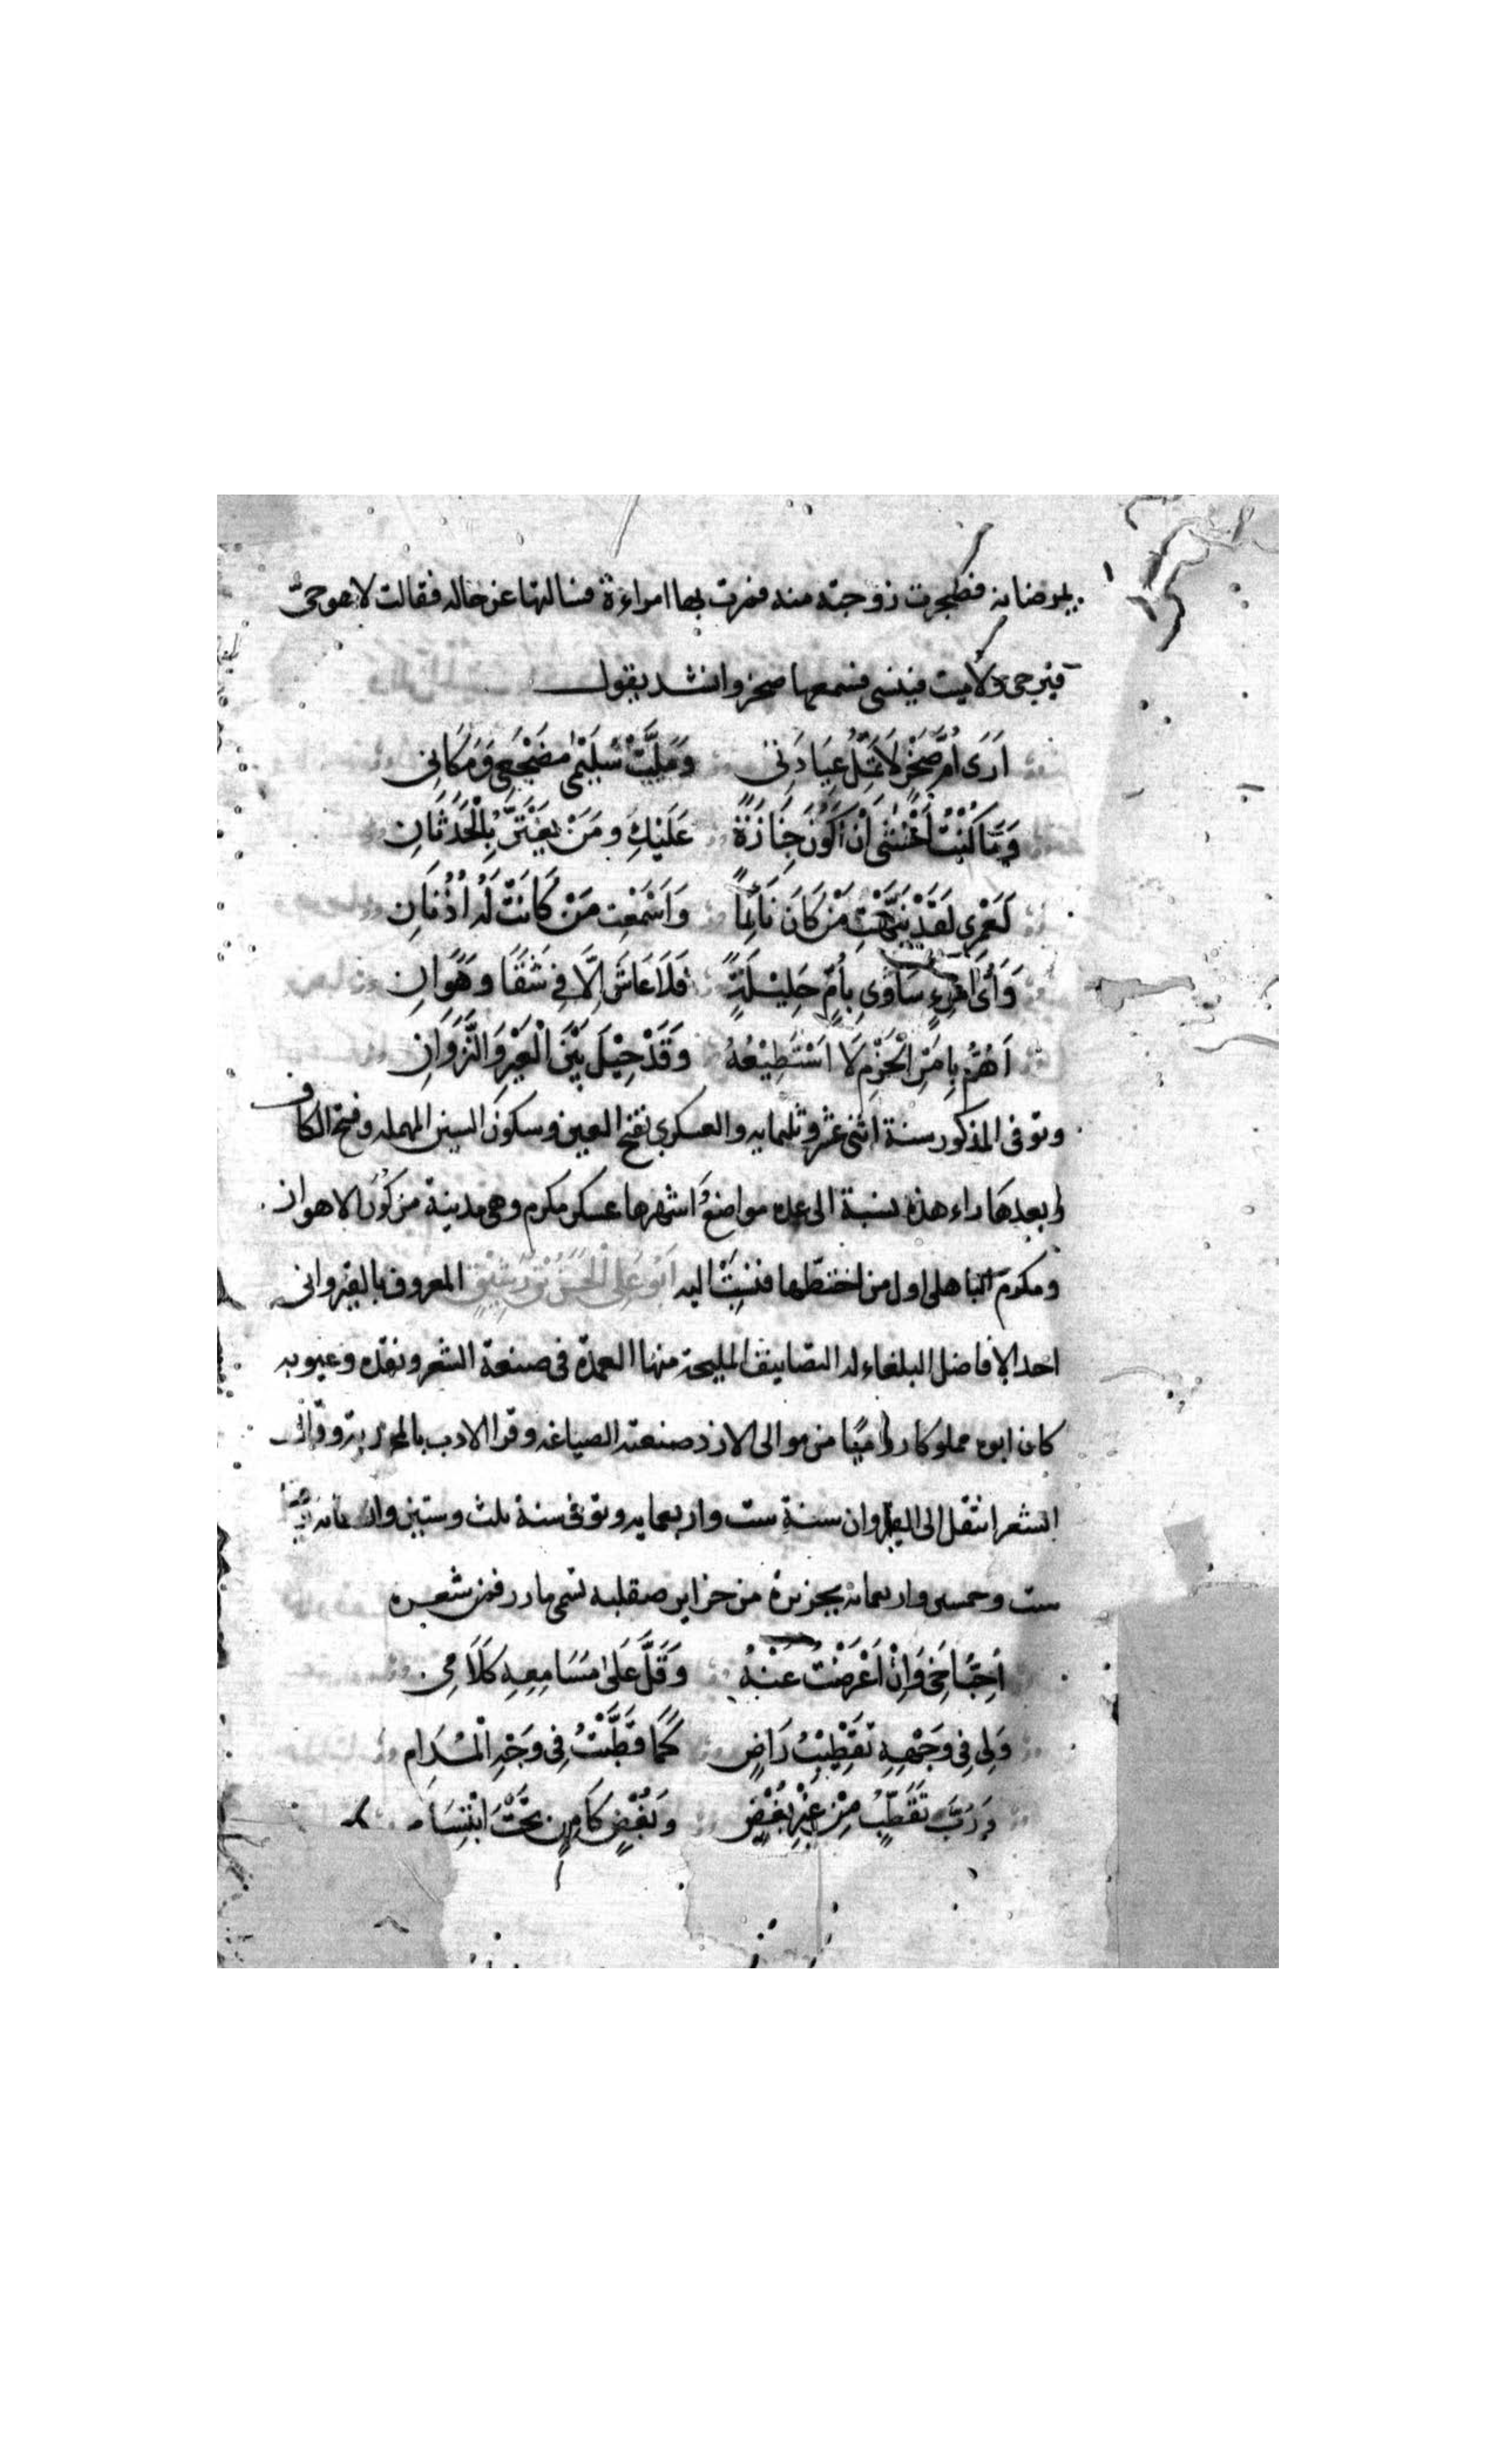 يمرضانه فضجرت زوجته منه فمرت بها امراءة فسالتها عن حاله فقالت لا هو حيّ
فيرجى ولا ميت فينسى فسمعها صخر وانشد يقول
اَرَى اُمَّ صَخْرٍ لَا تَمَلُّ عِيَادَتِى وَمَلَّتْ سُلَيْمٰى مَضْجَعِى وَمَكَانِى
وَمَا كُنْتُ اَخْشٰى اَنْ اَكُوْنَ جِنَازَةً عَلَيْكِ وَمَنْ يَغْتَرُّ بِالْحَدَثَانِ
لَعَمْرِى لَقَدْ نَبَّهْتِ مَنْ كَانَ نَائِمًا وَاَسْمَعْتِ مَنْ كَانَتْ لَهُ اُذُنَانِ
وَاَىُّ امْرِءٍ سَاوٰى بِأُمٍّ حَلِيْلَةً فَلَا عَاشَ اِلَّا فِى شَقًا وَهَوَانِ
اَهُمُّ بِاَمْرِ الْحَزْمِ لَا اَسْتَطِيْعُهُ وَقَدْ حِيْلَ بَيْنَ الْعَيْرِ وَالنَّزَوَانِ
وتوفى المذكور سنة اثنى عشر وثلثمايه والعسكرى بفتح العين وسكون السين المهمله وفتح الكاف
وبعدها راء هذه نسبة الى عده مواضع اشهرها عسكر مكرم وهى مدينة من كور الاهواز
ومكرم الباهلى اول من اختطّها فنسبت اليه اَبُو عَلِى الْحَسَنُ بْنُ رَشِيْقٍ المعروف بالقيروانى
احد الافاضل البلغاء له التصانيف المليحة منها العمدة فى صنعة الشعر ونقده وعيوبه
كان ابوه مملوكا روميا من موالى الازد صنعته الصياغه وقرا الادب بالمحمديه وقال
الشعر انتقل الى القيروان سنة ست واربعمايه وتوفى سنة ثلث وستين واربعمايه
ست وخمسين واربعمايه بجزيرة من جزاير صقليه تسمى مازر فمن شعره
أُحِبُّ اَخِى وَاِنْ اَعْرَضْتُ عَنْهُ وَقَلَّ عَلٰى مَسَامِعِهِ كَلَامِى
وَلِى فِى وَجْهِهِ تَقْطِيْبُ رَاضٍ كَمَا قَطَّبْتُ فِى وَجْهِ الْمُدَامِ
وَرُبَّ تَقَطُّبٍ مِنْ غَيْرِ بُغْضٍ وَبُغْضٍ كَامِنٍ تَحْتَ ابْتِسَام